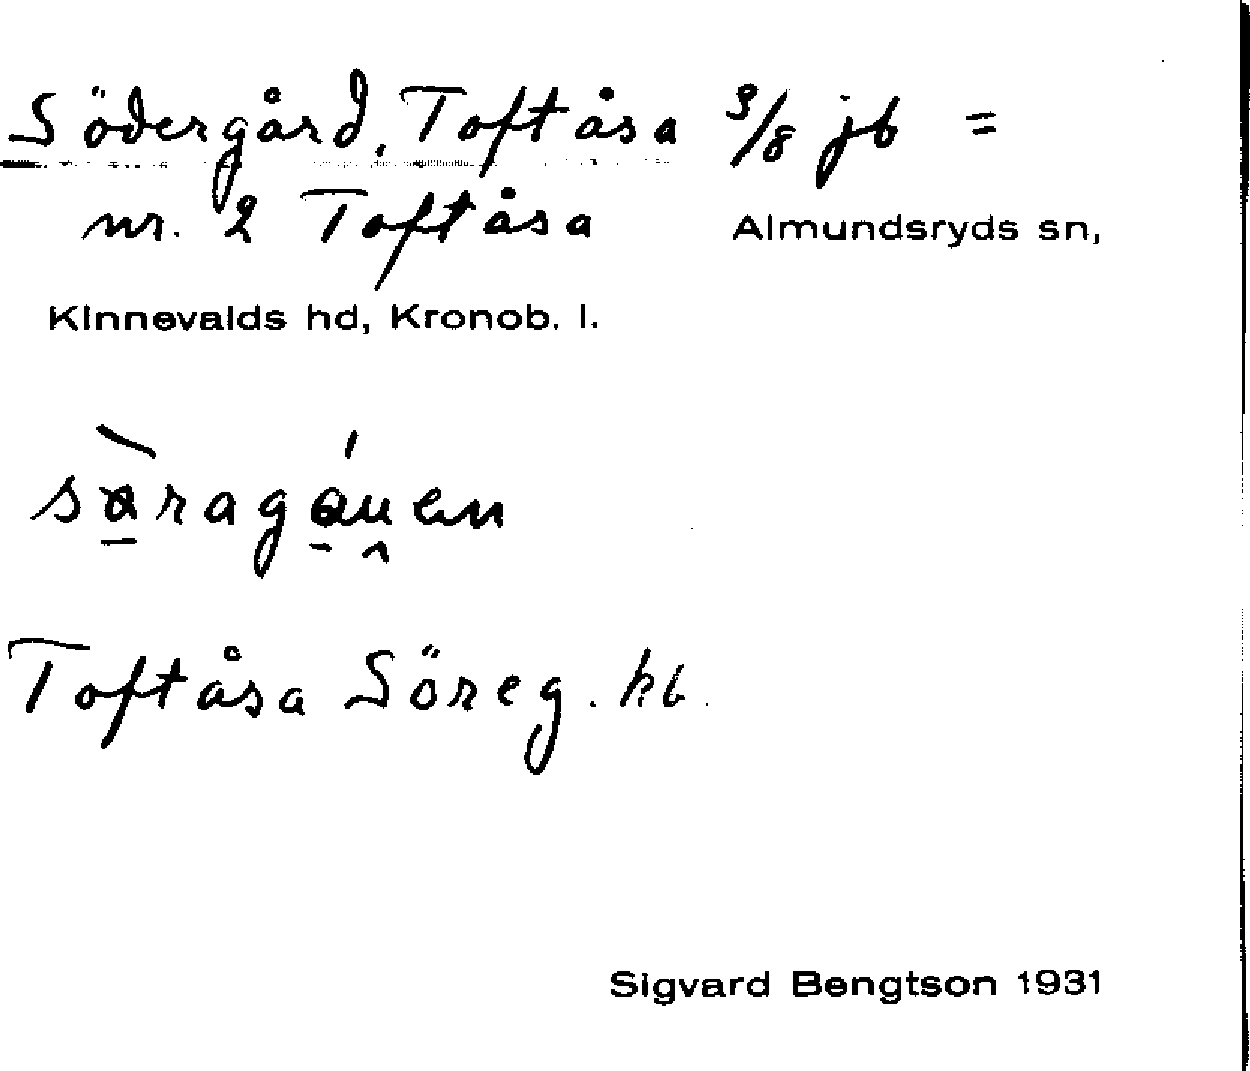 Södergård, Toftåsa 3/8 jb =
nr. 2 Toftåsa Almundsryds sn,
Kinnevalds hd, Kronob. l.
Toftåsa Söreg. hb.
Sigvard Bengtson 1931